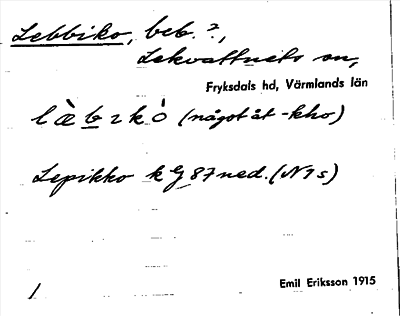 Lebbiko, beb. ?,
Lekvattnets sn,
Fryksdals hd, Värmlands län
l æ̀ b ı k ó (något åt -kho)
Lepikko k G 87 ned. (N 9 s)
Emil Eriksson 1915
1